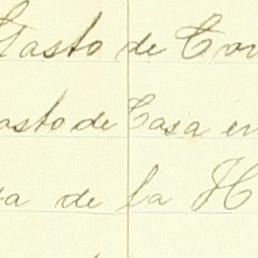 Gasto de Con
asto de Casa en
a de la H